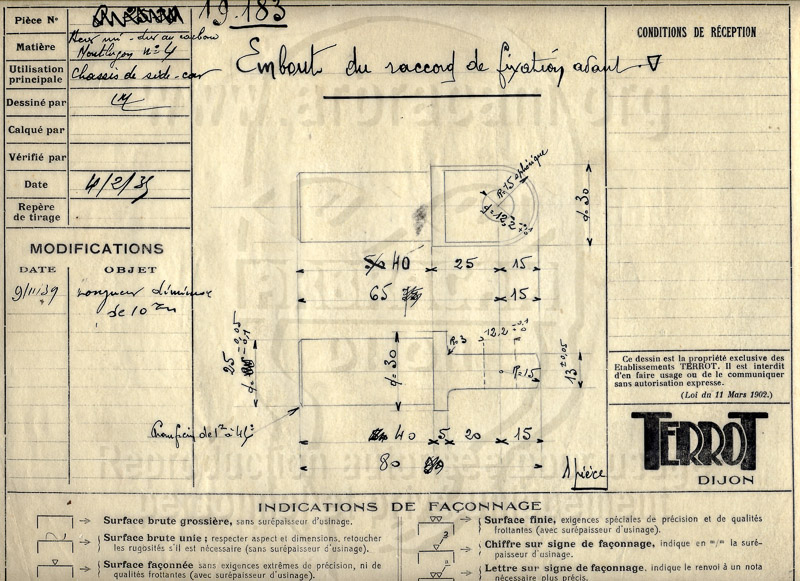 Pièce N°
19.183
Matière
Montluçon n° 4
Utilisation principale
Chassis de side-car
Dessiné par
Calqué par
Vérifié par
Date
4/2/35
Repère de tirage
MODIFICATIONS
DATE OBJET
9/11/39 longueur diminuée
de 10 m/m
Embout du raccord de fixation avant
CONDITIONS DE RÉCEPTION
R=15 sphérique
d=12,2
d=30
40 25 15
65 15
25 -0,05 -0,1
d=30
R=3
12,2
R=15
13 ±0,05
40 5 20 15
80
1 pièce
Ce dessin est la propriété exclusive des
Etablissements TERROT. Il est interdit
d'en faire usage ou de le communiquer
sans autorisation expresse.
(Loi du 11 Mars 1902.)
TERROT
DIJON
INDICATIONS DE FAÇONNAGE
Surface brute grossière, sans surépaisseur d'usinage.
Surface brute unie ; respecter aspect et dimensions, retoucher
les rugosités s'il est nécessaire (sans surépaisseur d'usinage).
Surface façonnée sans exigences extrêmes de précision, ni de
qualités frottantes (avec surépaisseur d'usinage).
Surface finie, exigences spéciales de précision et de qualités
frottantes (avec surépaisseur d'usinage).
3
Chiffre sur signe de façonnage, indique en m/m la suré-
paisseur d'usinage.
a
Lettre sur signe de façonnage, indique le renvoi à un nota
nécessaire plus précis.